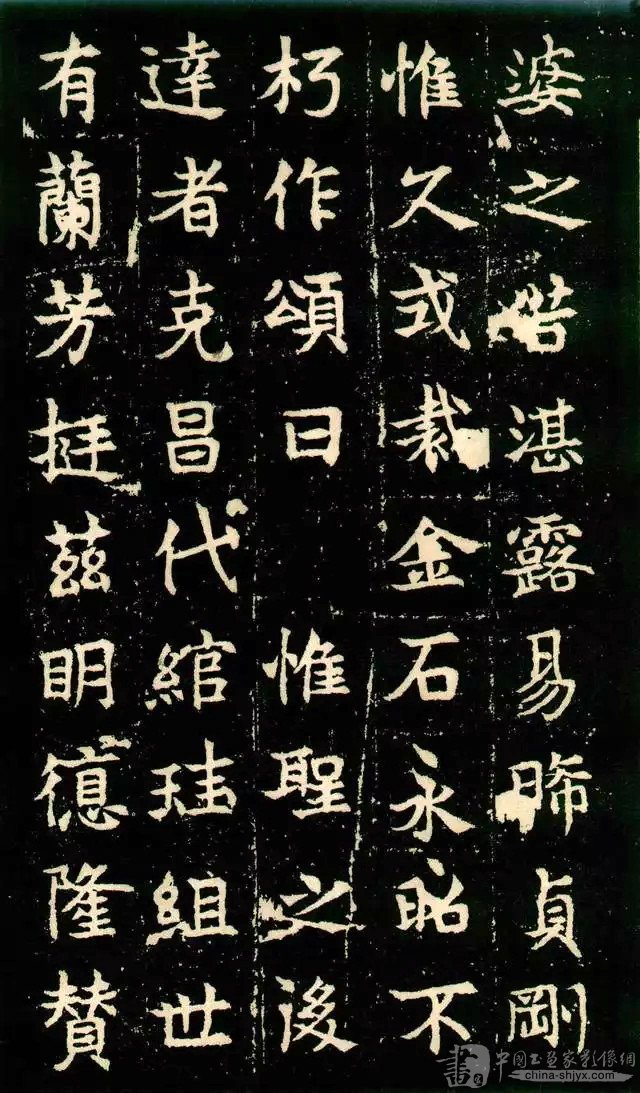 婆之湛露易晞貞剛
惟久式裁金石永昭不
朽作頌曰 惟聖之後
達者克昌代綰珪組世
有蘭芳挺茲明德隆贊
書 中國书画家影像網
china-shjyx.com